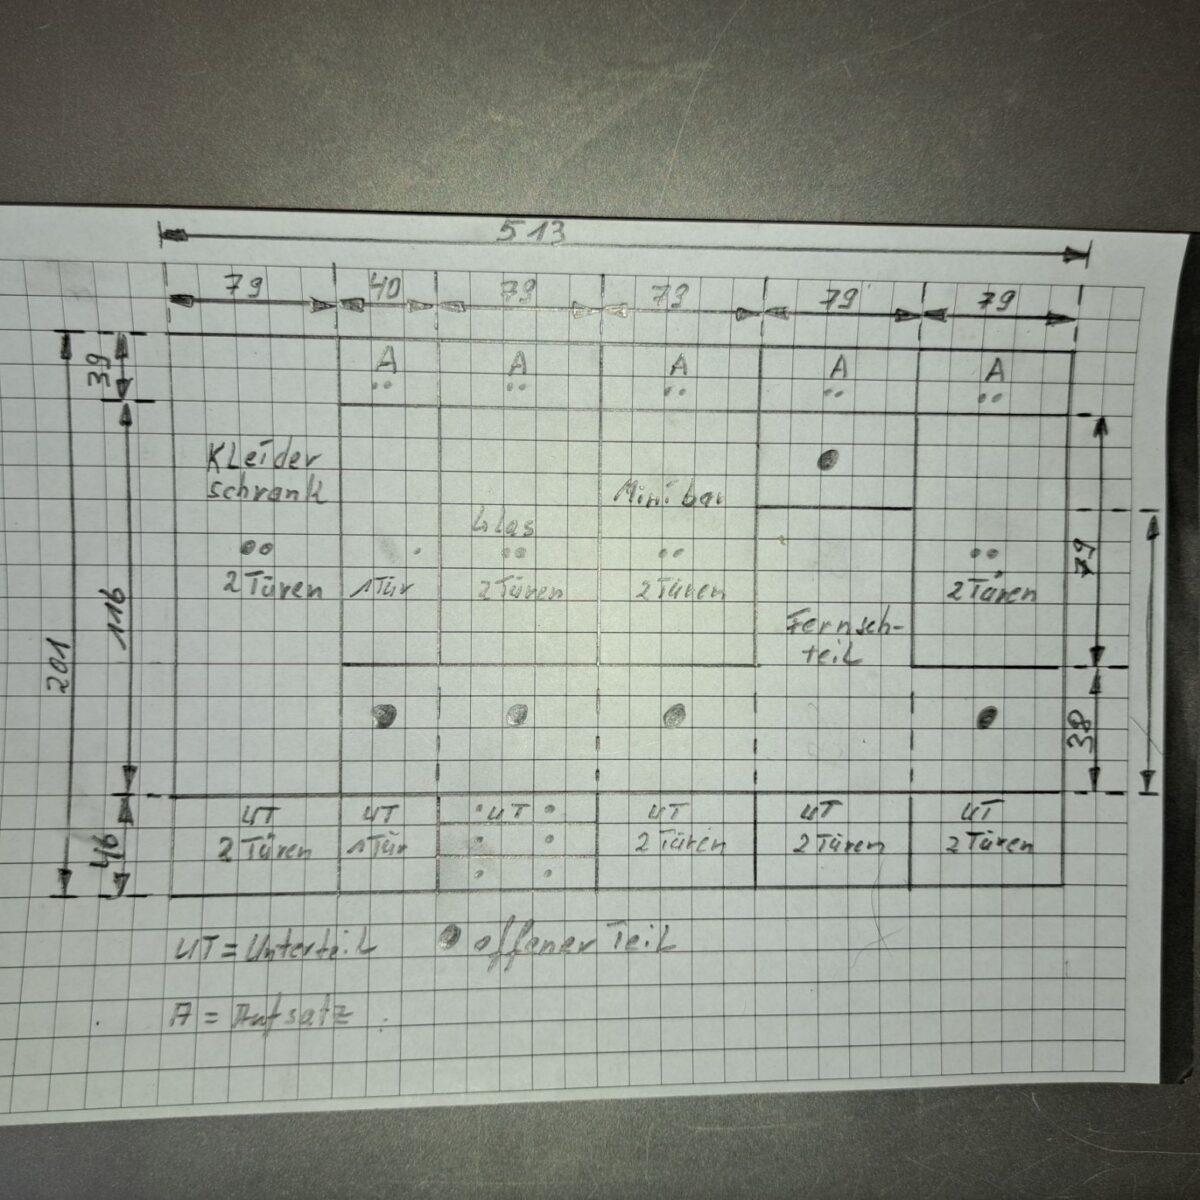 513
79 40 79 79 79 79
39
A A A A A
Kleider
schrank
Minibar
Glas
2 Türen 1 Tür 2 Türen 2 Türen 2 Türen
Fernseh-
teil
116
201
79
38
46
UT UT UT UT UT UT
2 Türen 1 Tür 2 Türen 2 Türen 2 Türen
UT = Unterteil offener Teil
A = Aufsatz